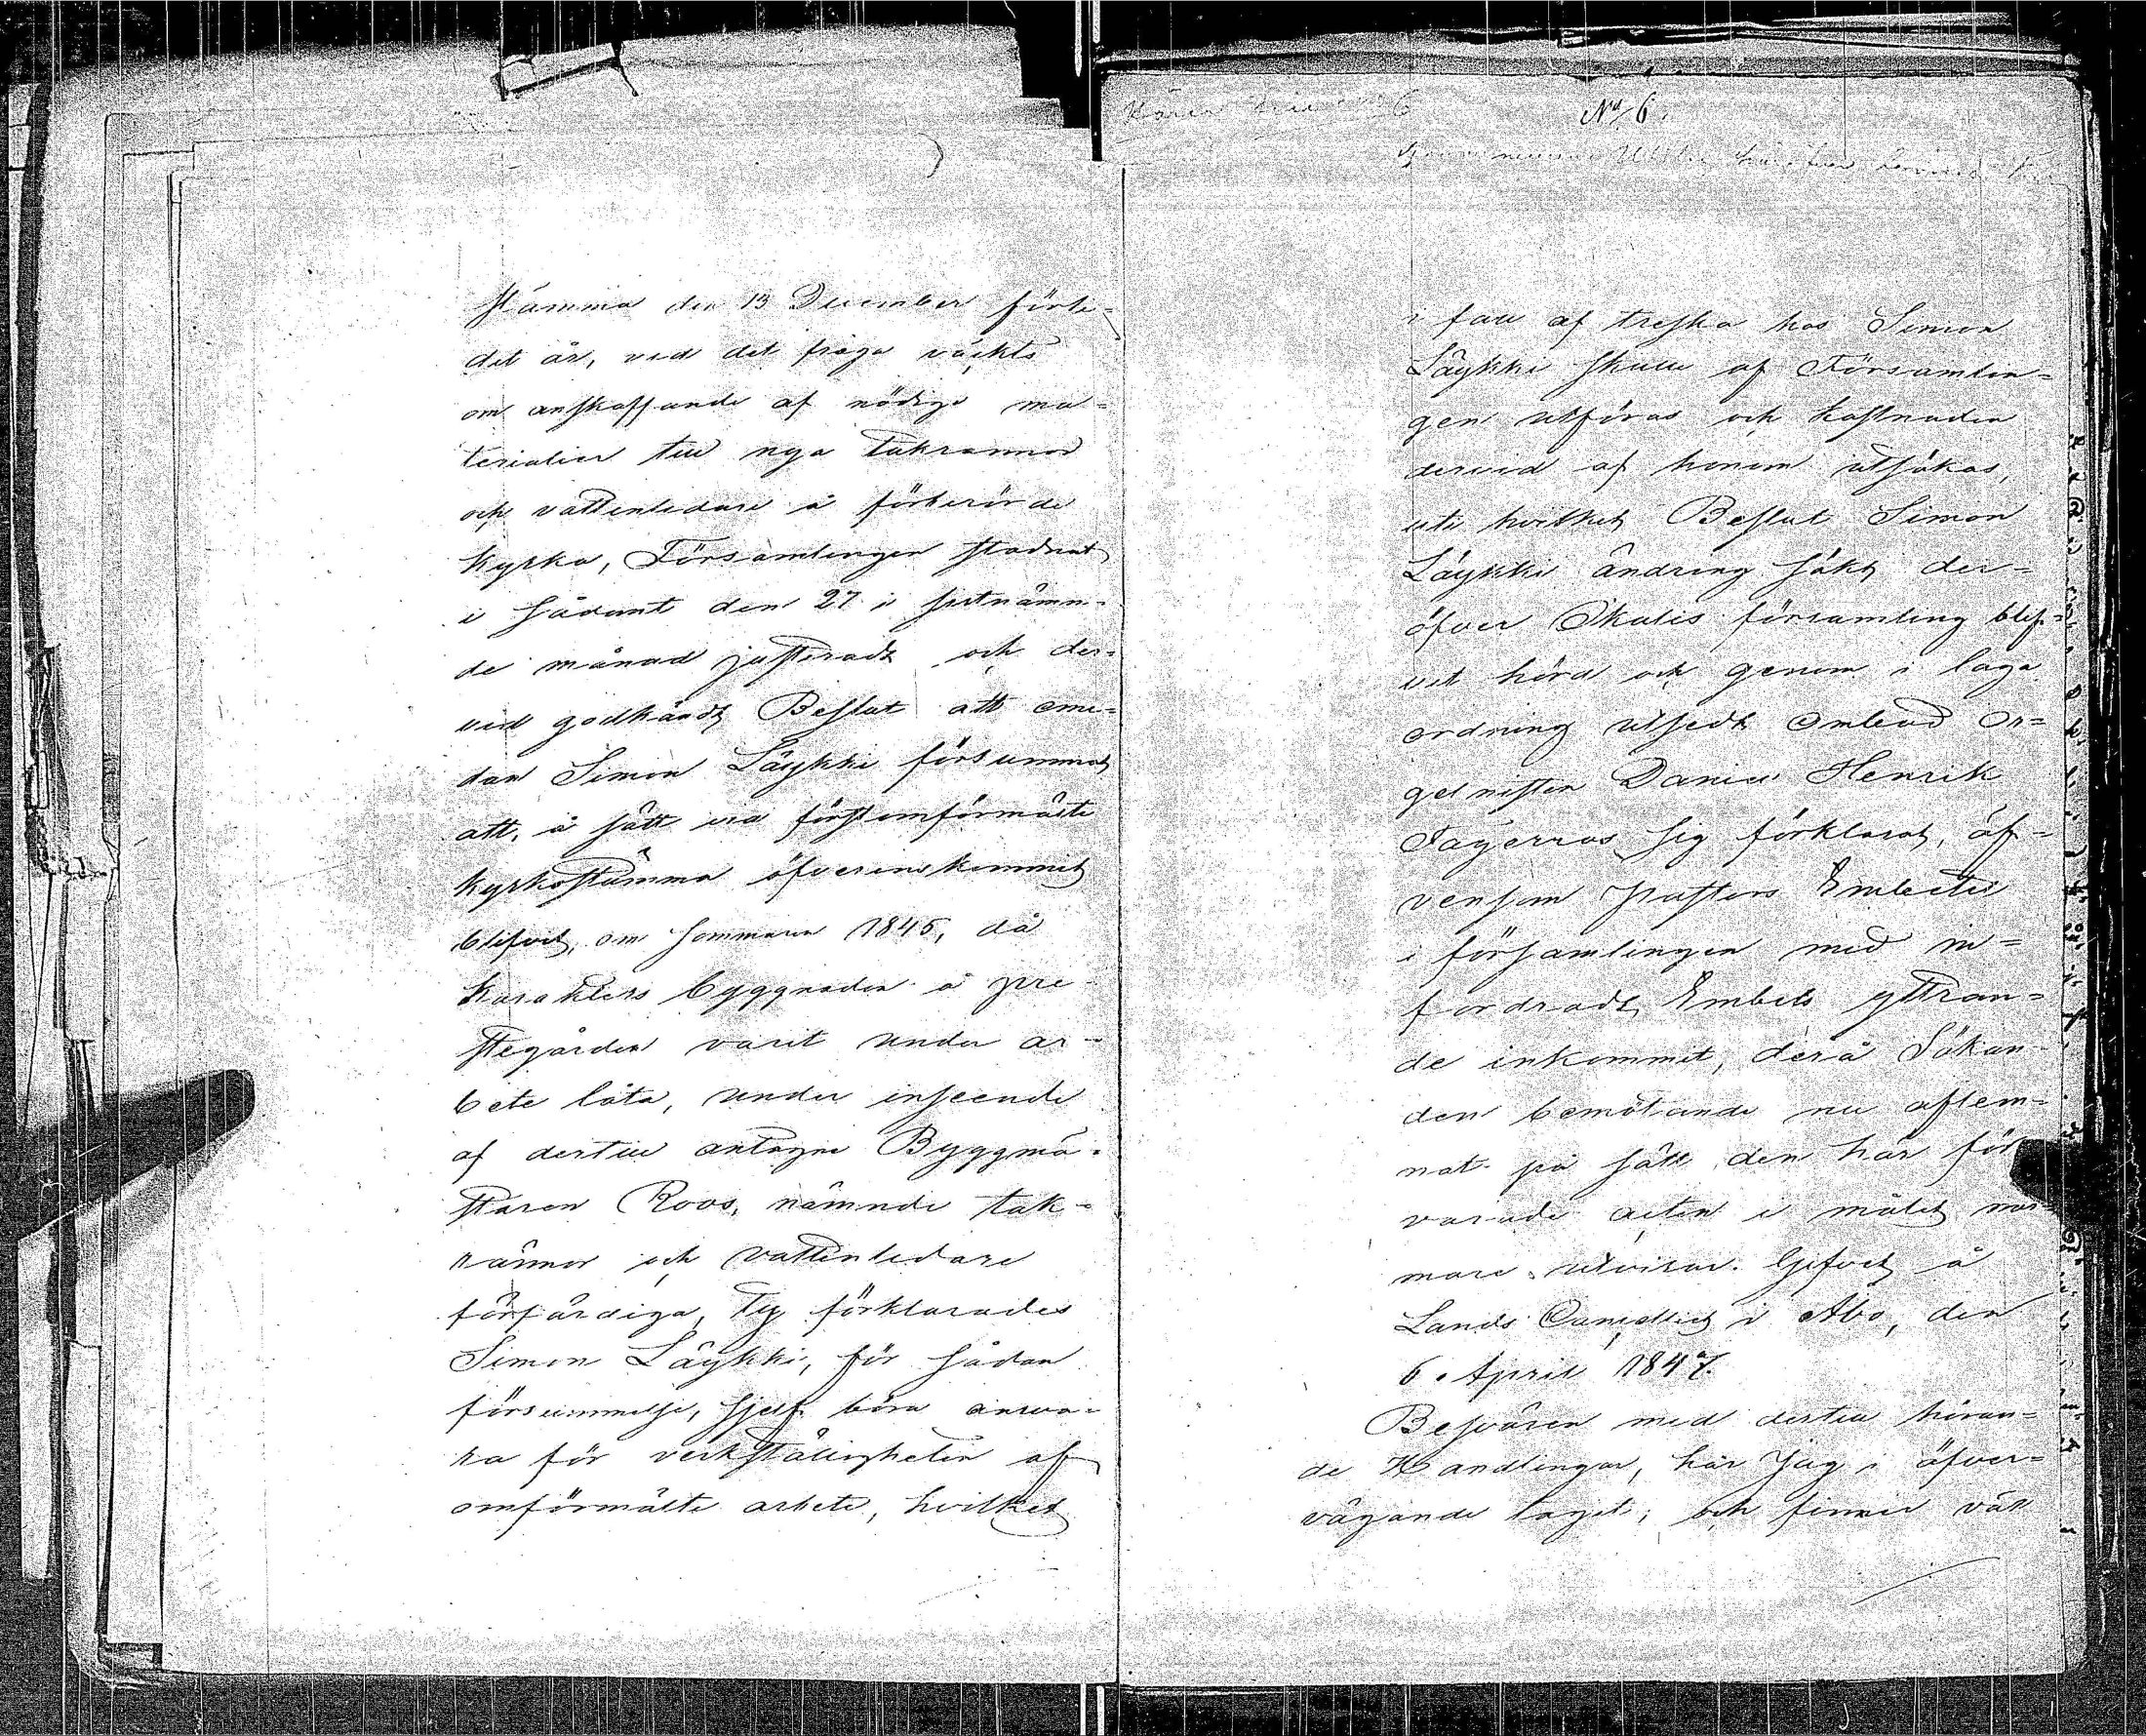 stämma den 13 December förle-
det år, vid det fråga väckts
om anskaffande af nödige ma-
terialier till nya takrännor
och vattenledare å förberörde
Kyrka, Församlingen stadnat
i sådant den 27 i sistnämn-
de månad justeradt och der-
vid godkändt Beslut att eme-
dan Simon Läykki försummat
att, å sätt vid förstomförmälte
Kyrkostämma öfverenskommit
blifvit, om sommaren 1845, då
Karakters byggnaden å pre-
stegården varit under ar-
bete låta, under inseende
af dertill antagne Byggmä-
staren Roos, nämnde tak-
rännor och vattenledare
förfärdiga, Ty förklarades
Simon Läykki, för sådan
försummelse, sjelf böra ansva-
ra för verkställigheten af
omförmälte arbete, hvilket
No 6.
i fall af treska hos Simon
Läykki skulle af Församlin-
gen utföras och kostnaden
dervid af honom utsökas,
uti hvilket Beslut Simon
Läykki ändring sökt der-
öfver Ikalis församling blif-
vit hörd och genom i laga
ordning utsedt Ombud Or-
gelnisten Daniel Henrik
Fagerroos sig förklarat, äf-
vensom Pastors Embetet
i församlingen med in-
fordradt Embets yttran-
de inkommit, derå Sökan-
den bemötande nu aflem-
nat på sätt den här för-
varade acten i målet när-
mare utvisar. Gifvet å
Lands Cancelliet i Åbo, den
6 April 1847.
Besvären med dertill höran-
de Handlingar, har Jag i öfver-
vägande tagit; och finner väl